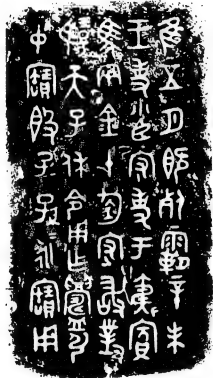 隹五月既死霸辛未
王事小臣守事于夷夷賓
馬兩金十鈞守敢對
揚天子休令用乍鑄引
中寶𣪘子子孫孫永寶用